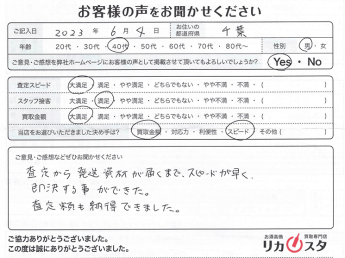 お客様の声をお聞かせください
ご記入日 2023年 6月 4日 お住いの都道府県 千葉
年齢 20代・30代・40代・50代・60代・70代・80代〜 性別 男・女
ご意見・ご感想を弊社ホームページにお客様の声として掲載させて頂いてもよろしいでしょうか? Yes・No
査定スピード 大満足・満足・やや満足・どちらでもない・やや不満・不満・( )
スタッフ接客 大満足・満足・やや満足・どちらでもない・やや不満・不満・( )
買取金額 大満足・満足・やや満足・どちらでもない・やや不満・不満・( )
当店をお選びいただきました決め手は? 買取金額・対応力・利便性・スピード その他( )
ご意見・ご感想などぜひお聞かせください
査定から発送資材が届くまで、スピードが早く、
即決する事ができた。
査定額も納得できました。
ご協力ありがとうございました。
この度は誠にありがとうございました。
お酒高価 買取専門店
リカスタ